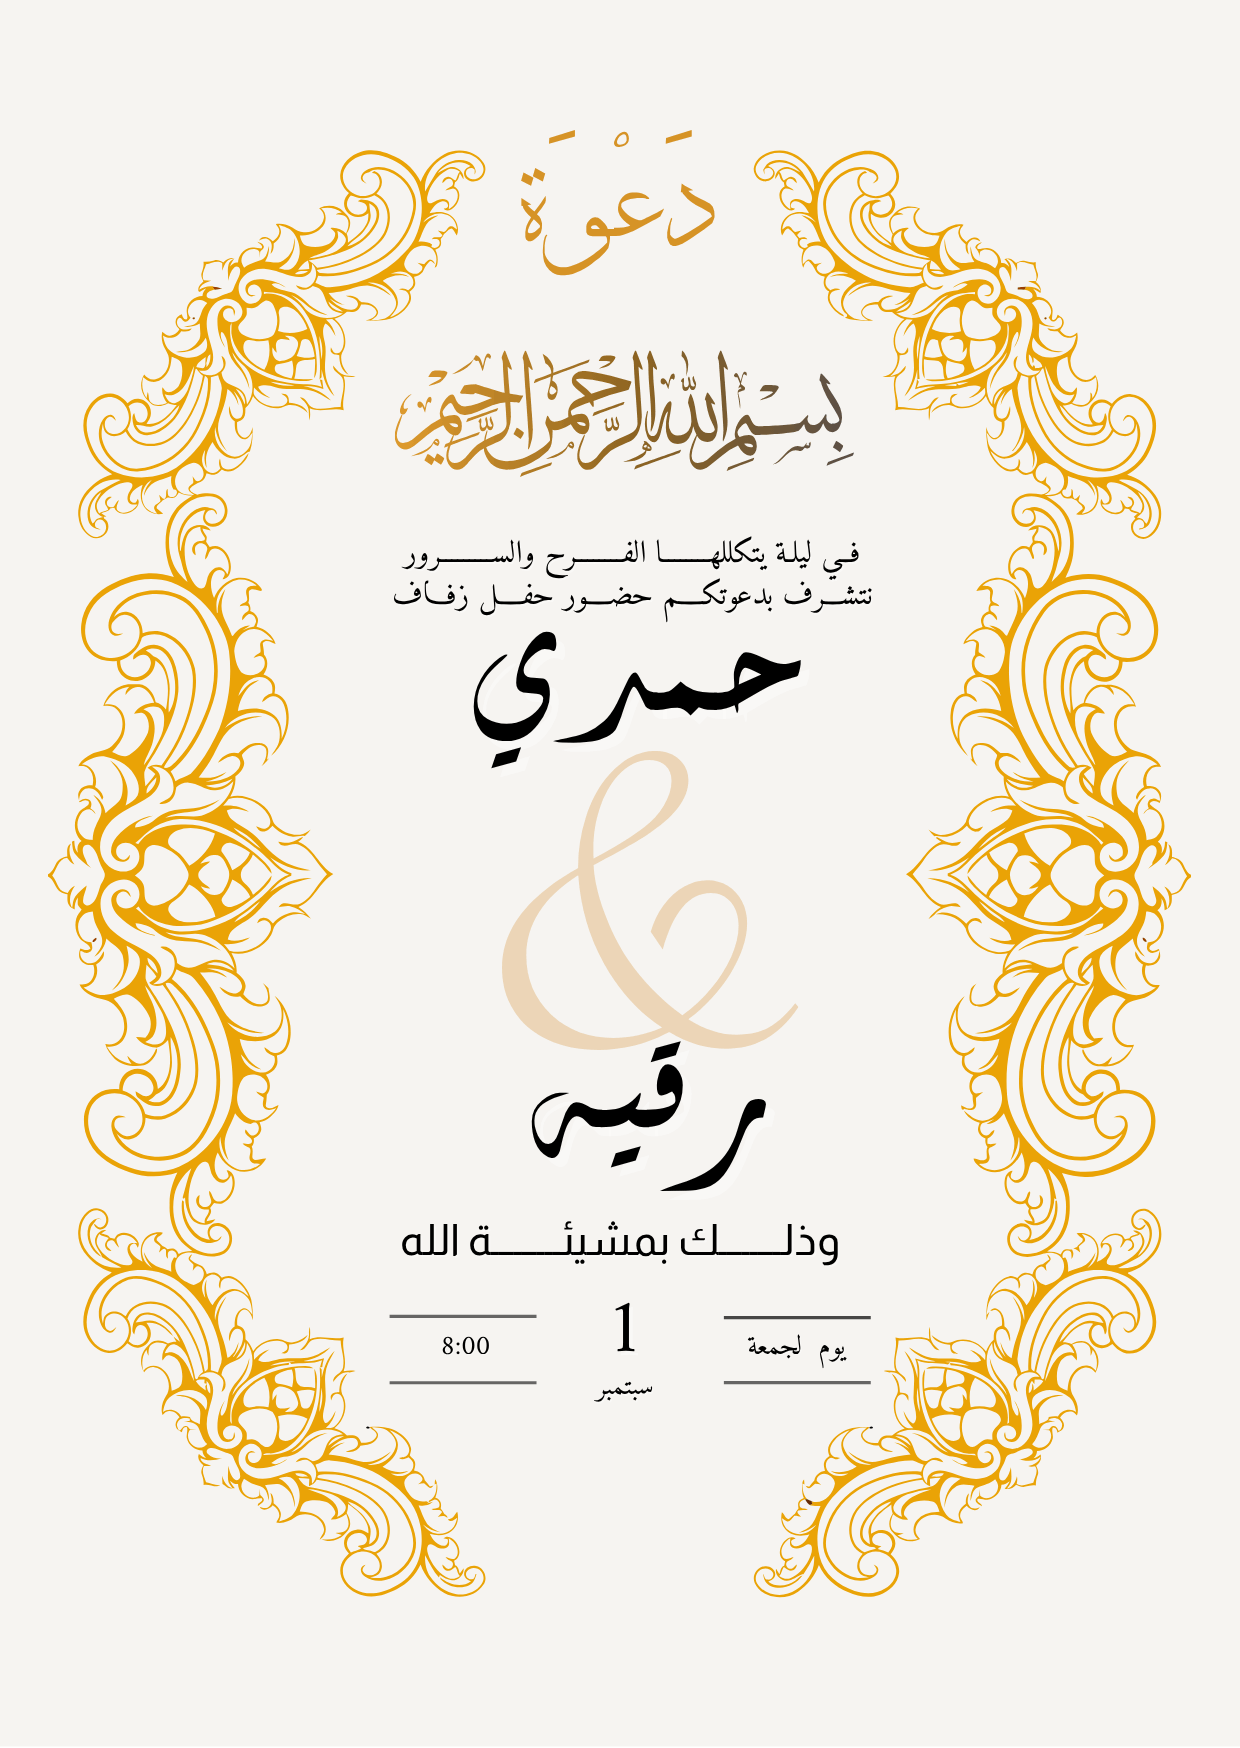 دَعْوَة
بِسْمِ اللهِ الرَّحْمَنِ الرَّحِيمِ
في ليلة يتكللهـــا الفـــرح والســـرور
نتشـرف بدعوتكـم حضـور حفـل زفـاف
حمدي
&
رقيه
وذلـــك بمشيئـــة الله
يوم لجمعة
1
سبتمبر
8:00